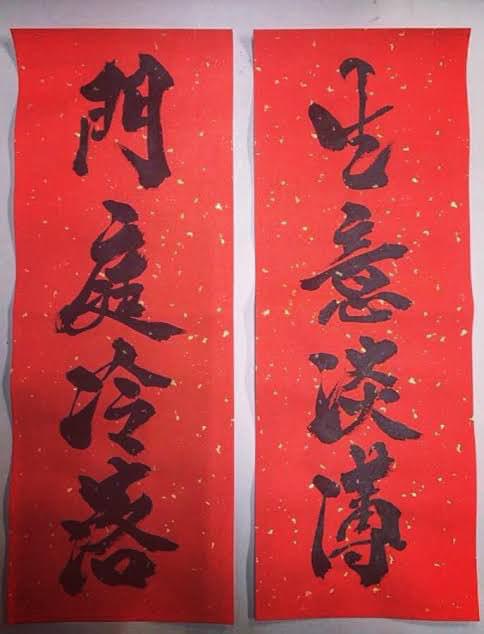 生意淡薄
門庭冷落